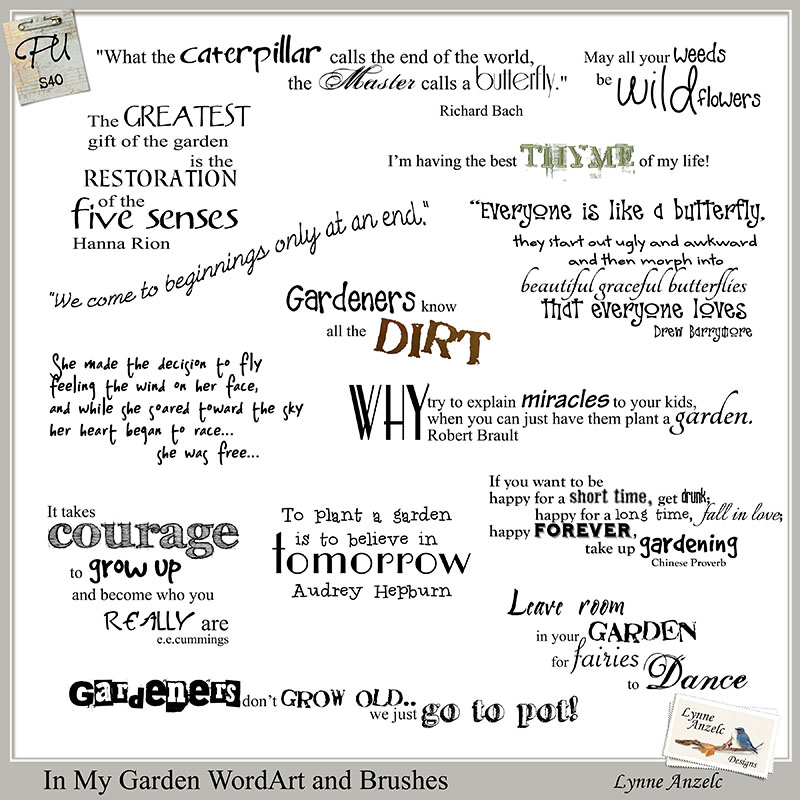 PU
S4O
"What the caterpillar calls the end of the world,
the Master calls a butterfly."
Richard Bach
May all your weeds
be wildflowers
The GREATEST
gift of the garden
is the
RESTORATION
of the
five senses
Hanna Rion
I'm having the best THYME of my life!
"We come to beginnings only at an end."
"Everyone is like a butterfly,
they start out ugly and awkward
and then morph into
beautiful graceful butterflies
that everyone loves
Drew Barrymore
Gardeners know
all the DIRT
She made the decision to fly
feeling the wind on her face,
and while she soared toward the sky
her heart began to race...
she was free...
WHY try to explain miracles to your kids,
when you can just have them plant a garden.
Robert Brault
If you want to be
happy for a short time, get drunk;
happy for a long time, fall in love;
happy FOREVER,
take up gardening
Chinese Proverb
It takes
courage
to grow up
and become who you
REALLY are
e.e.cummings
To plant a garden
is to believe in
tomorrow
Audrey Hepburn
Leave room
in your GARDEN
for fairies
to Dance
Gardeners don't GROW OLD..
we just go to pot!
Lynne
Anzelc
Designs
In My Garden WordArt and Brushes
Lynne Anzelc